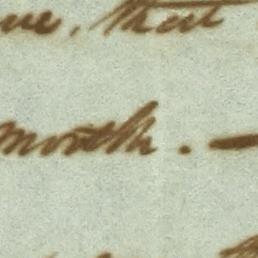 that
month. —